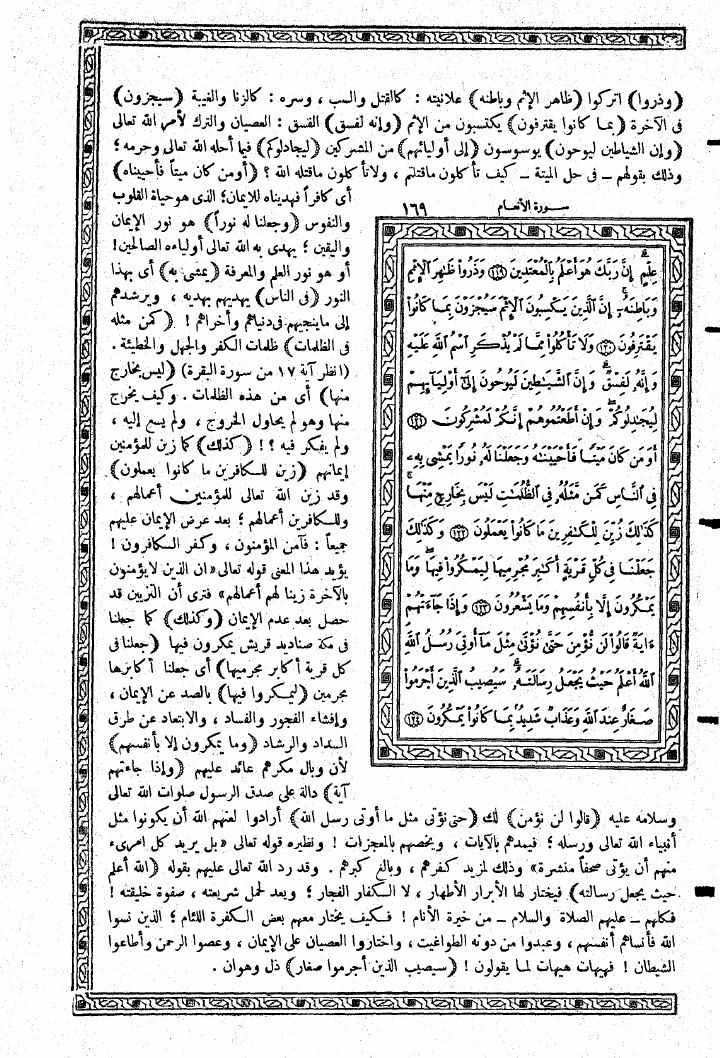 (وذروا) اتركوا (ظاهر الإثم وباطنه) علانيته : كالقتل والسب ، وسره : كالزنا والغيبة (سيجزون)
فى الآخرة (بما كانوا يقترفون) يكتسبون من الإثم (وإنه لفسق) الفسق : العصيان والترك لأمر الله تعالى
(وإن الشياطين ليوحون) يوسوسون (إلى أوليائهم) من المشركين (ليجادلوكم) فيما أحله الله تعالى وحرمه ؛
وذلك بقولهم ــ فى حل الميتة ــ كيف تأكلون ماقتلتم ، ولا تأكلون ماقتله الله ؟ (أومن كان ميتاً فأحييناه)
أى كافراً فهديناه للايمان؛ الذى هو حياة القلوب
والنفوس (وجعلنا له نوراً) هو نور الإيمان
واليقين ؛ يهدى به الله تعالى أولياءه الصالحين!
أو هو نور العلم والمعرفة (يمشى به) أى بهذا
النور (فى الناس) يهديهم بهديه ، ويرشدهم
إلى ماينجيهم فى دنياهم وأخراهم ! (كمن مثله
فى الظلمات) ظلمات الكفر والجهل والخطيئة .
(انظر آية ١٧ من سورة البقرة) (ليس بخارج
منها) أى من هذه الظلمات . وكيف يخرج
منها وهو لم يحاول الخروج ، ولم يسع إليه ،
ولم يفكر فيه ؟! (كذلك) كما زين للمؤمنين
إيمانهم (زين للكافرين ما كانوا يعملون)
وقد زين الله تعالى للمؤمنين أعمالهم ،
وللكافرين أعمالهم ؛ بعد عرض الإيمان عليهم
جميعاً : فآمن المؤمنون ، وكفر الكافرون !
يؤيد هذا المعنى قوله تعالى «ان الذين لايؤمنون
بالآخرة زينا لهم أعمالهم» فترى أن التزيين قد
حصل بعد عدم الإيمان (وكذلك) كما جعلنا
فى مكة صناديد قريش يمكرون فيها (جعلنا فى
كل قرية أكابر مجرميها) أى جعلنا أكابرها
مجرمين (ليمكروا فيها) بالصد عن الإيمان ،
وإفشاء الفجور والفساد ، والابتعاد عن طرق
السداد والرشاد (وما يمكرون إلا بأنفسهم)
لأن وبال مكرهم عائد عليهم (وإذا جاءتهم
آية) دالة على صدق الرسول صلوات الله تعالى
سورة الأنعام ١٦٩
عِلْمٍ إِنَّ رَبَّكَ هُوَ أَعْلَمُ بِالْمُعْتَدِينَ ﴿١١٩﴾ وَذَرُوا۟ ظَٰهِرَ ٱلْإِثْمِ
وَبَاطِنَهُۥٓ إِنَّ ٱلَّذِينَ يَكْسِبُونَ ٱلْإِثْمَ سَيُجْزَوْنَ بِمَا كَانُوا۟
يَقْتَرِفُونَ ﴿١٢٠﴾ وَلَا تَأْكُلُوا۟ مِمَّا لَمْ يُذْكَرِ ٱسْمُ ٱللَّهِ عَلَيْهِ
وَإِنَّهُۥ لَفِسْقٌ وَإِنَّ ٱلشَّيَٰطِينَ لَيُوحُونَ إِلَىٰٓ أَوْلِيَآئِهِمْ
لِيُجَٰدِلُوكُمْ وَإِنْ أَطَعْتُمُوهُمْ إِنَّكُمْ لَمُشْرِكُونَ ﴿١٢١﴾
أَوَمَن كَانَ مَيْتًا فَأَحْيَيْنَٰهُ وَجَعَلْنَا لَهُۥ نُورًا يَمْشِى بِهِۦ
فِى ٱلنَّاسِ كَمَن مَّثَلُهُۥ فِى ٱلظُّلُمَٰتِ لَيْسَ بِخَارِجٍ مِّنْهَا
كَذَٰلِكَ زُيِّنَ لِلْكَٰفِرِينَ مَا كَانُوا۟ يَعْمَلُونَ ﴿١٢٢﴾ وَكَذَٰلِكَ
جَعَلْنَا فِى كُلِّ قَرْيَةٍ أَكَٰبِرَ مُجْرِمِيهَا لِيَمْكُرُوا۟ فِيهَا وَمَا
يَمْكُرُونَ إِلَّا بِأَنفُسِهِمْ وَمَا يَشْعُرُونَ ﴿١٢٣﴾ وَإِذَا جَآءَتْهُمْ
ءَايَةٌ قَالُوا۟ لَن نُّؤْمِنَ حَتَّىٰ نُؤْتَىٰ مِثْلَ مَآ أُوتِىَ رُسُلُ ٱللَّهِ
ٱللَّهُ أَعْلَمُ حَيْثُ يَجْعَلُ رِسَالَتَهُۥ سَيُصِيبُ ٱلَّذِينَ أَجْرَمُوا۟
صَغَارٌ عِندَ ٱللَّهِ وَعَذَابٌ شَدِيدٌۢ بِمَا كَانُوا۟ يَمْكُرُونَ ﴿١٢٤﴾
وسلامه عليه (قالوا لن نؤمن) لك (حتى نؤتى مثل ما أوتى رسل الله) أرادوا لعنهم الله أن يكونوا مثل
أنبياء الله تعالى ورسله ؛ فيمدهم بالآيات ، ويخصهم بالمعجزات ! ونظيره قوله تعالى «بل يريد كل امرىء
منهم أن يؤتى صحفاً منشرة» وذلك لمزيد كفرهم ، وبالغ كبرهم . وقد رد الله تعالى عليهم بقوله (الله أعلم
حيث يجعل رسالته) فيختار لها الأبرار الأطهار ، لا الكفار الفجار ؛ ويعد لحمل شريعته ، صفوة خليقته !
فكلهم ــ عليهم الصلاة والسلام ــ من خيرة الأنام ! فكيف يختار معهم بعض الكفرة اللئام ؛ الذين نسوا
الله فأنساهم أنفسهم ، وعبدوا من دونه الطواغيت ، واختاروا العصيان على الإيمان ، وعصوا الرحمن وأطاعوا
الشيطان ! فهيهات هيهات لما يقولون ! (سيصيب الذين أجرموا صغار) ذل وهوان .